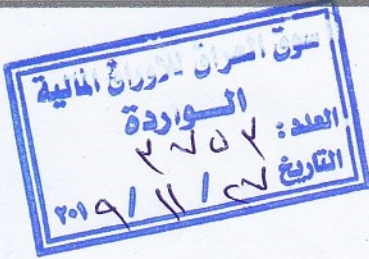 سوق العراق للأوراق المالية
الـواردة
العدد: ٣٧٥٣
التاريخ ٢٧ / ١١ / ٢٠١٩